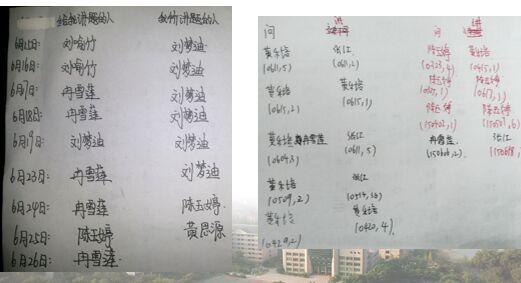 给我讲题的人 我给讲题的人
6月15日: 刘喻竹 刘梦迪
6月16日: 刘喻竹 刘梦迪
6月17日: 冉雪莲 刘梦迪
6月18日: 冉雪莲 刘梦迪
6月19日: 刘梦迪 刘梦迪
6月23日: 冉雪莲 刘梦迪
6月24日: 冉雪莲 陈玉婷
6月25日: 陈玉婷 黄思源
6月26日: 冉雪莲
问 讲
黄乐培 张江
(0611,5) (0611,2)
黄乐培 黄乐培
(0615,2) (0615,1)
黄乐培 冉雪莲 张江
(0604,3) (0611,5)
黄乐培 张江
(0509,2)
黄乐培 黄乐培
(0429,2) (0420,4)
问 讲
陈玉婷 黄乐培
(0323,4) (0415,1)
陈玉婷 陈玉婷
(0617,1)
陈玉婷 陈玉婷
(150402,1)
冉雪莲 张江